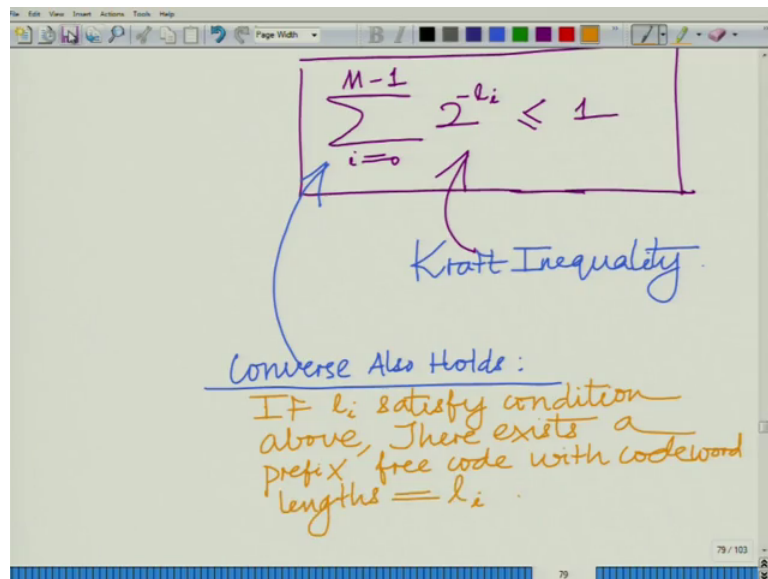 File Edit View Insert Actions Tools Help
Page Width B I
M-1
∑ 2^{-l_i} ≤ 1
i=0
Kraft Inequality.
Converse Also Holds:
If l_i satisfy condition
above, There exists a
prefix free code with codeword
lengths = l_i.
79 / 103
79